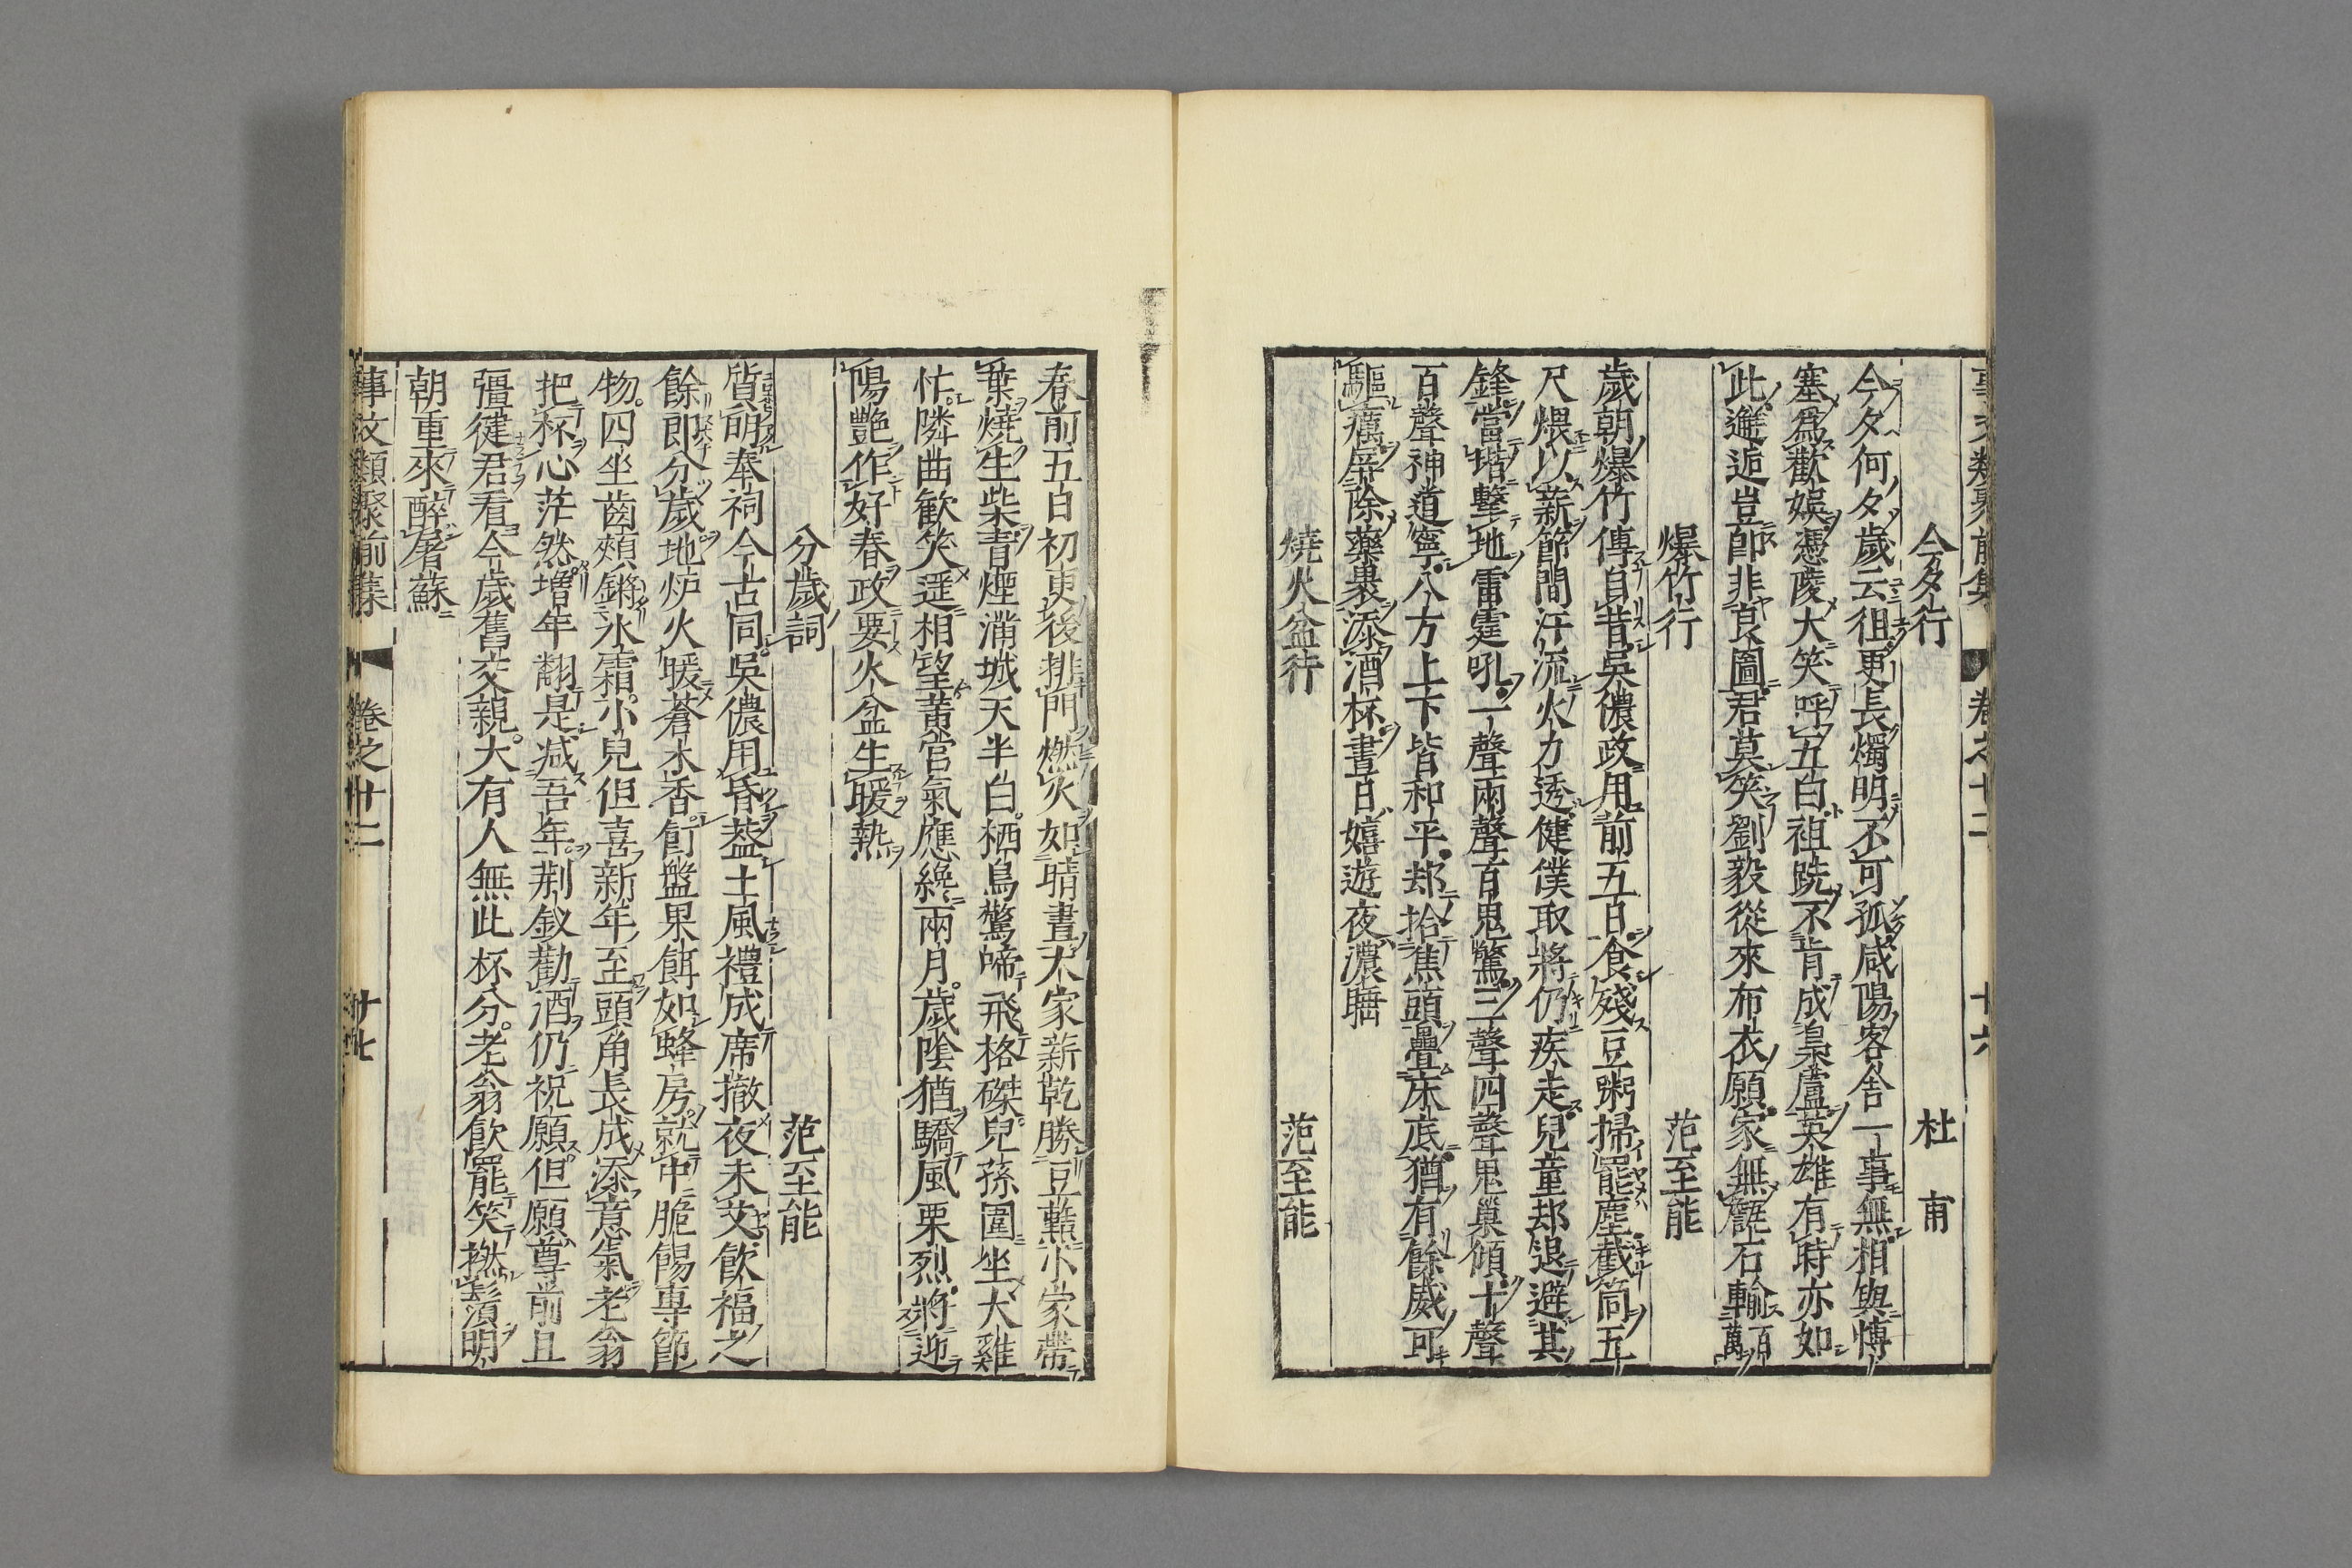 今夕行　杜甫
今夕何夕歲云徂更長燭明不可孤咸陽客舍一事無相與愽
塞爲歡娯憑陵大笑呼五白袒跣不肯成梟盧英雄有時亦如
此邂逅豈即非良圖君莫笑劉毅從來布衣願家無儋石輸百萬
爆竹行　范至能
歲朝爆竹傳自昔吳儂政用前五日食殘豆粥掃罷塵截筒五
尺煨以薪節間汗流火力透健僕取將仍疾走兒童却退避其
鋒當堦擊地雷霆吼一聲兩聲百鬼驚三聲四聲鬼巢傾十聲
百聲神道寧八方上下皆和平却拾焦頭疊床底猶有餘威可
驅癘屏除藥裹添酒杯晝日嬉遊夜濃睡
燒火盆行　范至能
春前五日初更後排門燃火如晴晝大家薪乾勝豆䕸小家帶
葉燒生柴青煙滿城天半白栖鳥驚啼飛格磔兒孫圍坐犬雞
忙隣曲歡笑遥相望黄宮氣應纔兩月歲陰猶驕風栗烈將迎
陽艶作好春政要火盆生暖熱
分歲詞　范至能
質明奉祠今古同吳儂用昏盖土風禮成廢撤夜未艾飲福之
餘即分歲地炉火暖蒼朮香飣盤果餌如蜂房就中脆餳專節
物四坐齒頰鏘氷霜小兒但喜新年至頭角長成添意氣老翁
把杯心茫然増年翻是减吾年荊釵勸酒仍祝願但願尊前且
彊健君看今歲舊交親大有人無此杯分老翁飲罷笑撚鬚明
朝重來醉屠蘇
事文類聚前集　卷之十二　十七